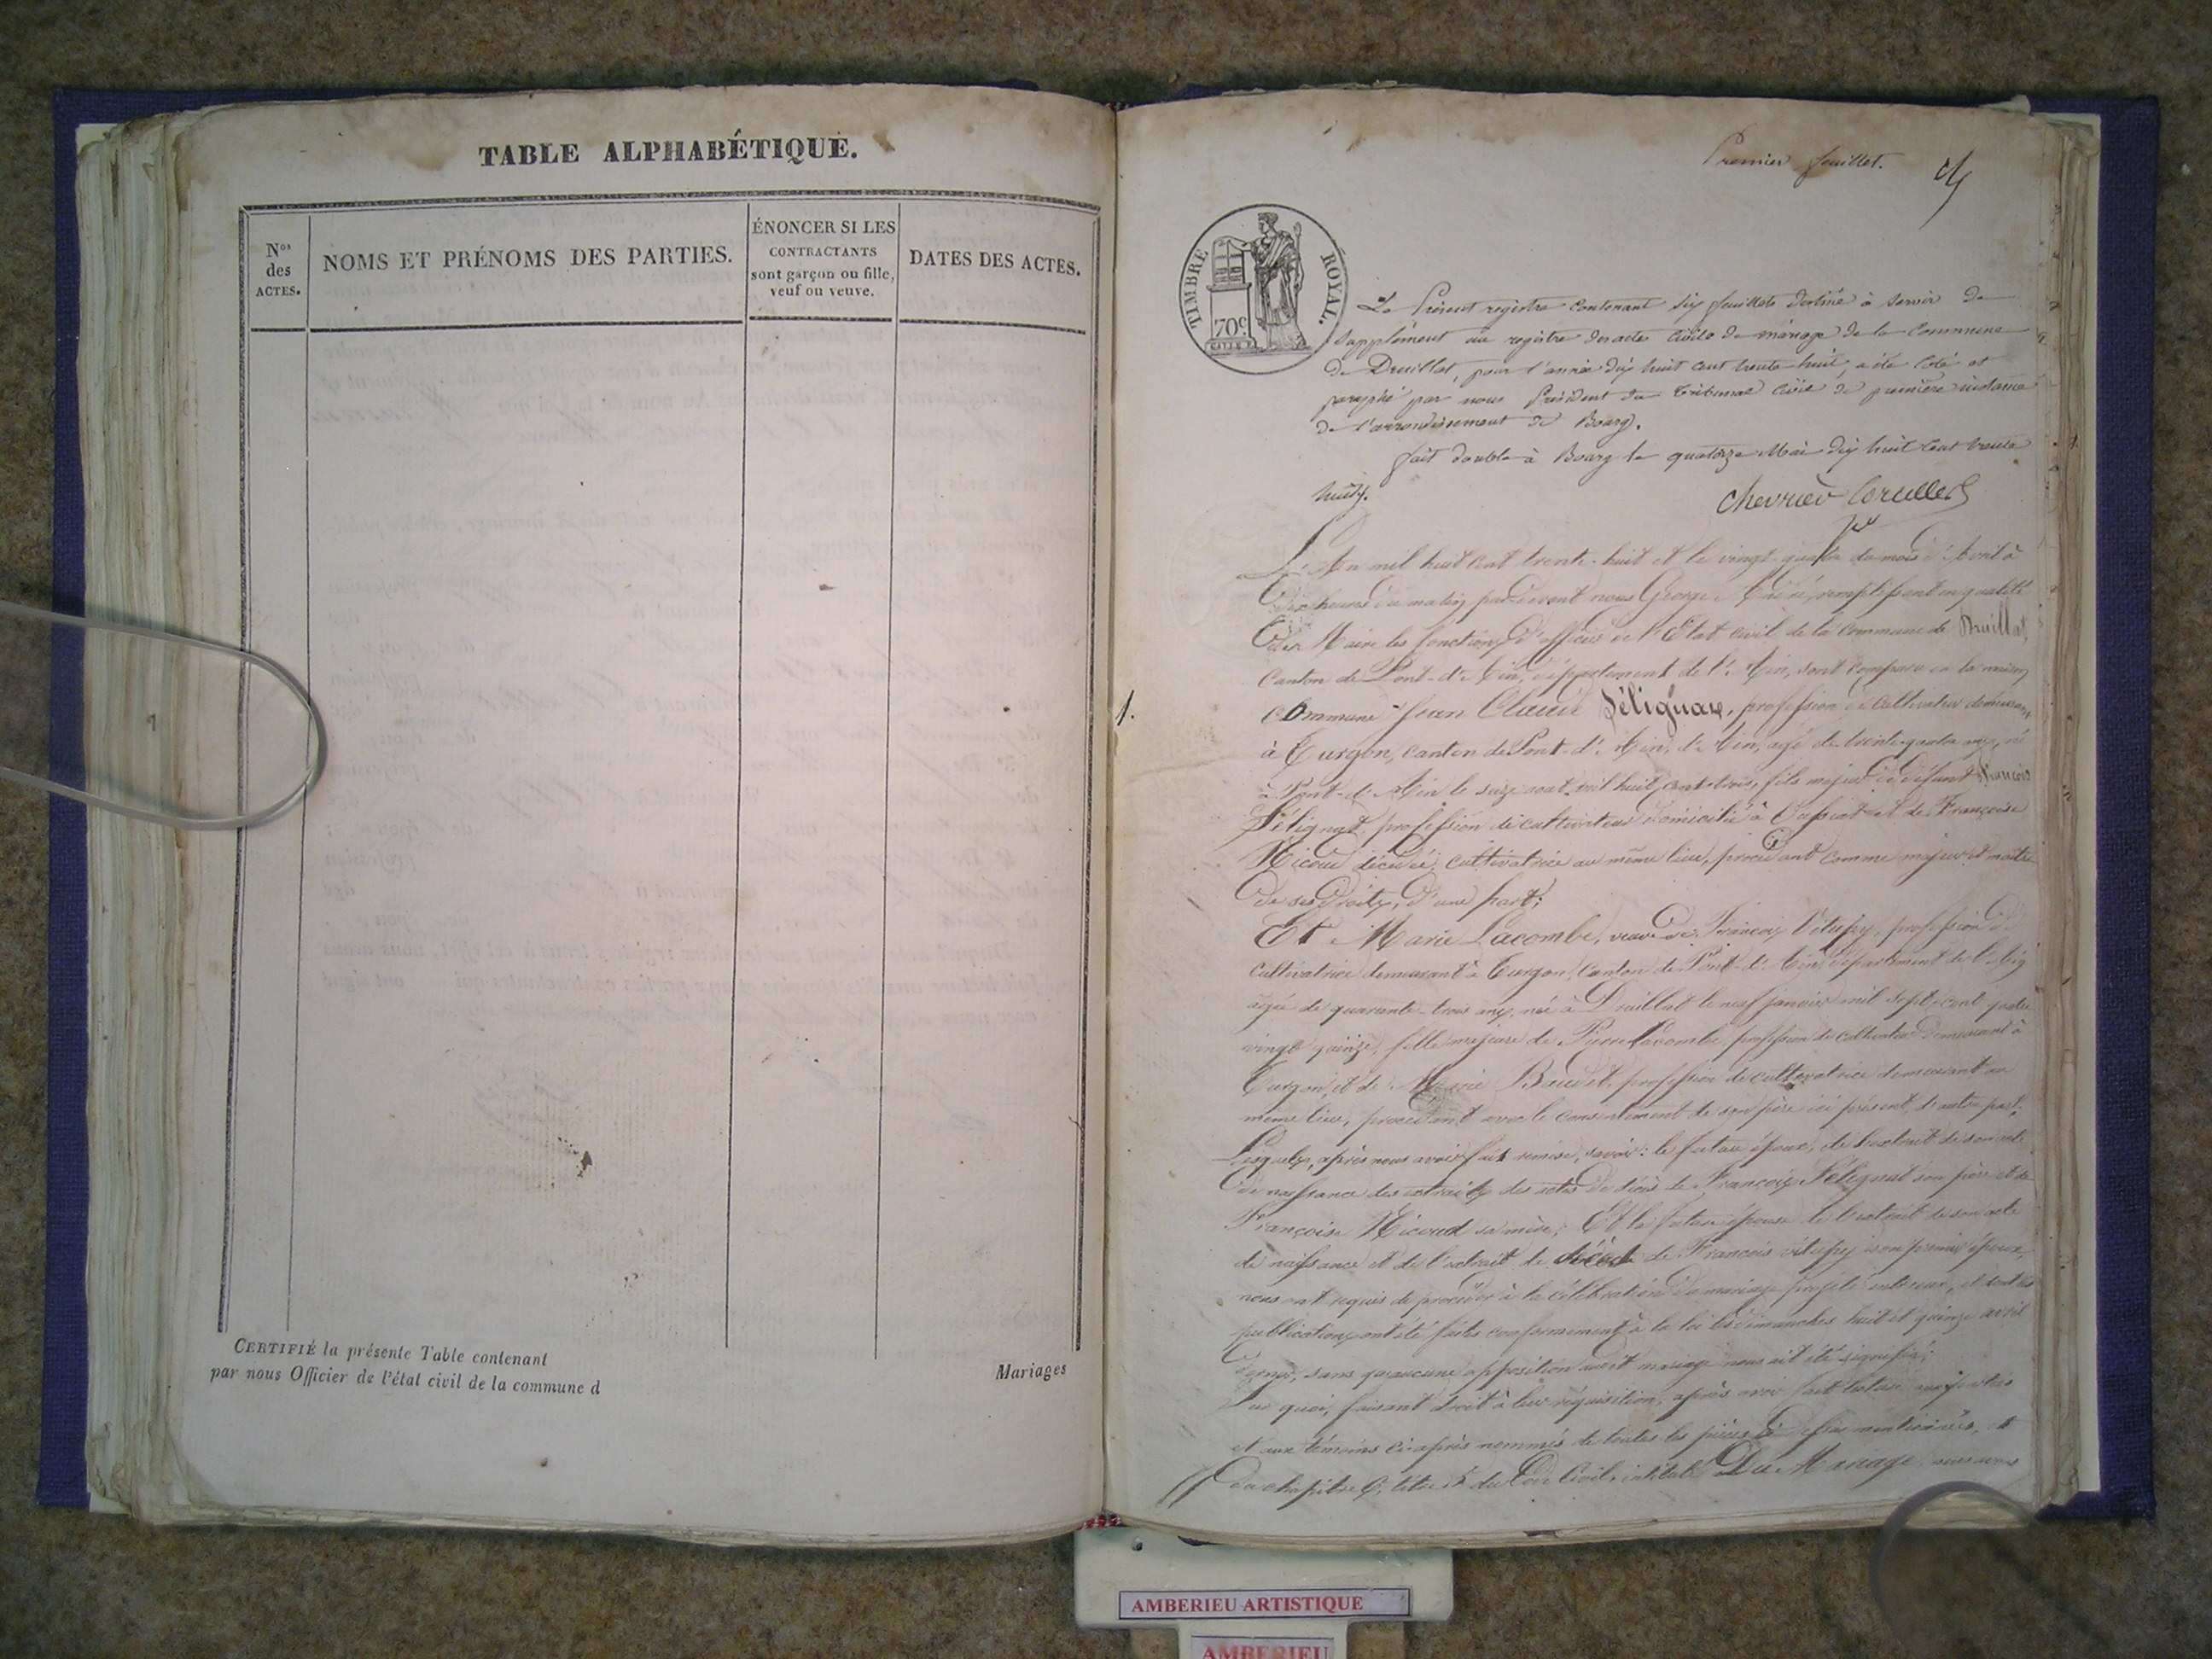 TABLE ALPHABÉTIQUE.
Nos des ACTES.
NOMS ET PRÉNOMS DES PARTIES.
ÉNONCER SI LES
CONTRACTANTS
sont garçon ou fille,
veuf ou veuve.
DATES DES ACTES.
CERTIFIÉ la présente Table contenant
Mariages
par nous Officier de l'état civil de la commune d
Premier feuillet.
TIMBRE ROYAL.
70c
Le Présent registre contenant six feuillets destiné à servir de
supplément au registre des actes civils de mariage de la commune
de Druillat, pour l'année dix huit cent trente huit, a été coté et
paraphé par nous Président du Tribunal Civil de première instance
de l'arrondissement de Bourg.
fait double à Bourg le quatorze Mai dix huit cent trente
huit.
1.
L'An mil huit cent trente-huit et le vingt-quatre du mois d'Avril à
dix heures du matin par devant nous George remplissant en qualité
de Maire les fonctions d'officier de l'Etat civil de la commune de Druillat,
Canton de Pont-d'Ain, département de l'Ain, sont comparu en la maison
commune Jean Claude Pélignax, profession de cultivateur demeurant
à Turgon, canton de Pont-d'Ain, de l'Ain, agé de trente-quatre ans, né
à Pont-d'Ain le seize août mil huit cent trois, fils majeur de défunt François
Pélignat, profession de cultivateur domicilié à et de Françoise
Nicoud décédée, cultivatrice au même lieu, procédant comme majeur et maître
de ses droits, d'une part;
Et Marie Lacombe, veuve de François profession de
cultivatrice demeurant à Turgon, Canton de Pont-d'Ain, département de l'Ain
agée de quarante-trois ans, née à Druillat le neuf janvier mil sept cent quatre
vingt quinze, fille majeure de Pierre Lacombe, profession de cultivateur demeurant à
Turgon, et de Marie profession de cultivatrice demeurant au
même lieu, procédant avec le consentement de son père ici présent, d'autre part.
Lesquels, après nous avoir fait remise, savoir: le futur époux, de l'extrait de son acte
de naissance des extraits des actes de décès de François Pélignat son père et de
Françoise Nicoud sa mère; Et la future épouse de l'extrait de son acte
de naissance et de l'extrait de décès de François son premier époux,
nous ont requis de procéder à la célébration du mariage projeté entre eux, et dont les
publications ont été faites conformément à la loi les dimanches huit et quinze avril
dernier, sans qu'aucune opposition audit mariage nous ait été signifiée;
Sur quoi, faisant droit à leur réquisition, après avoir fait lecture aux parties
et aux témoins ci-après nommés de toutes les pièces ci-dessus mentionnées, et
du chapitre 6, titre 5 du Code Civil, intitulé Du Mariage, nous avons
AMBERIEU ARTISTIQUE
AMBERIEU